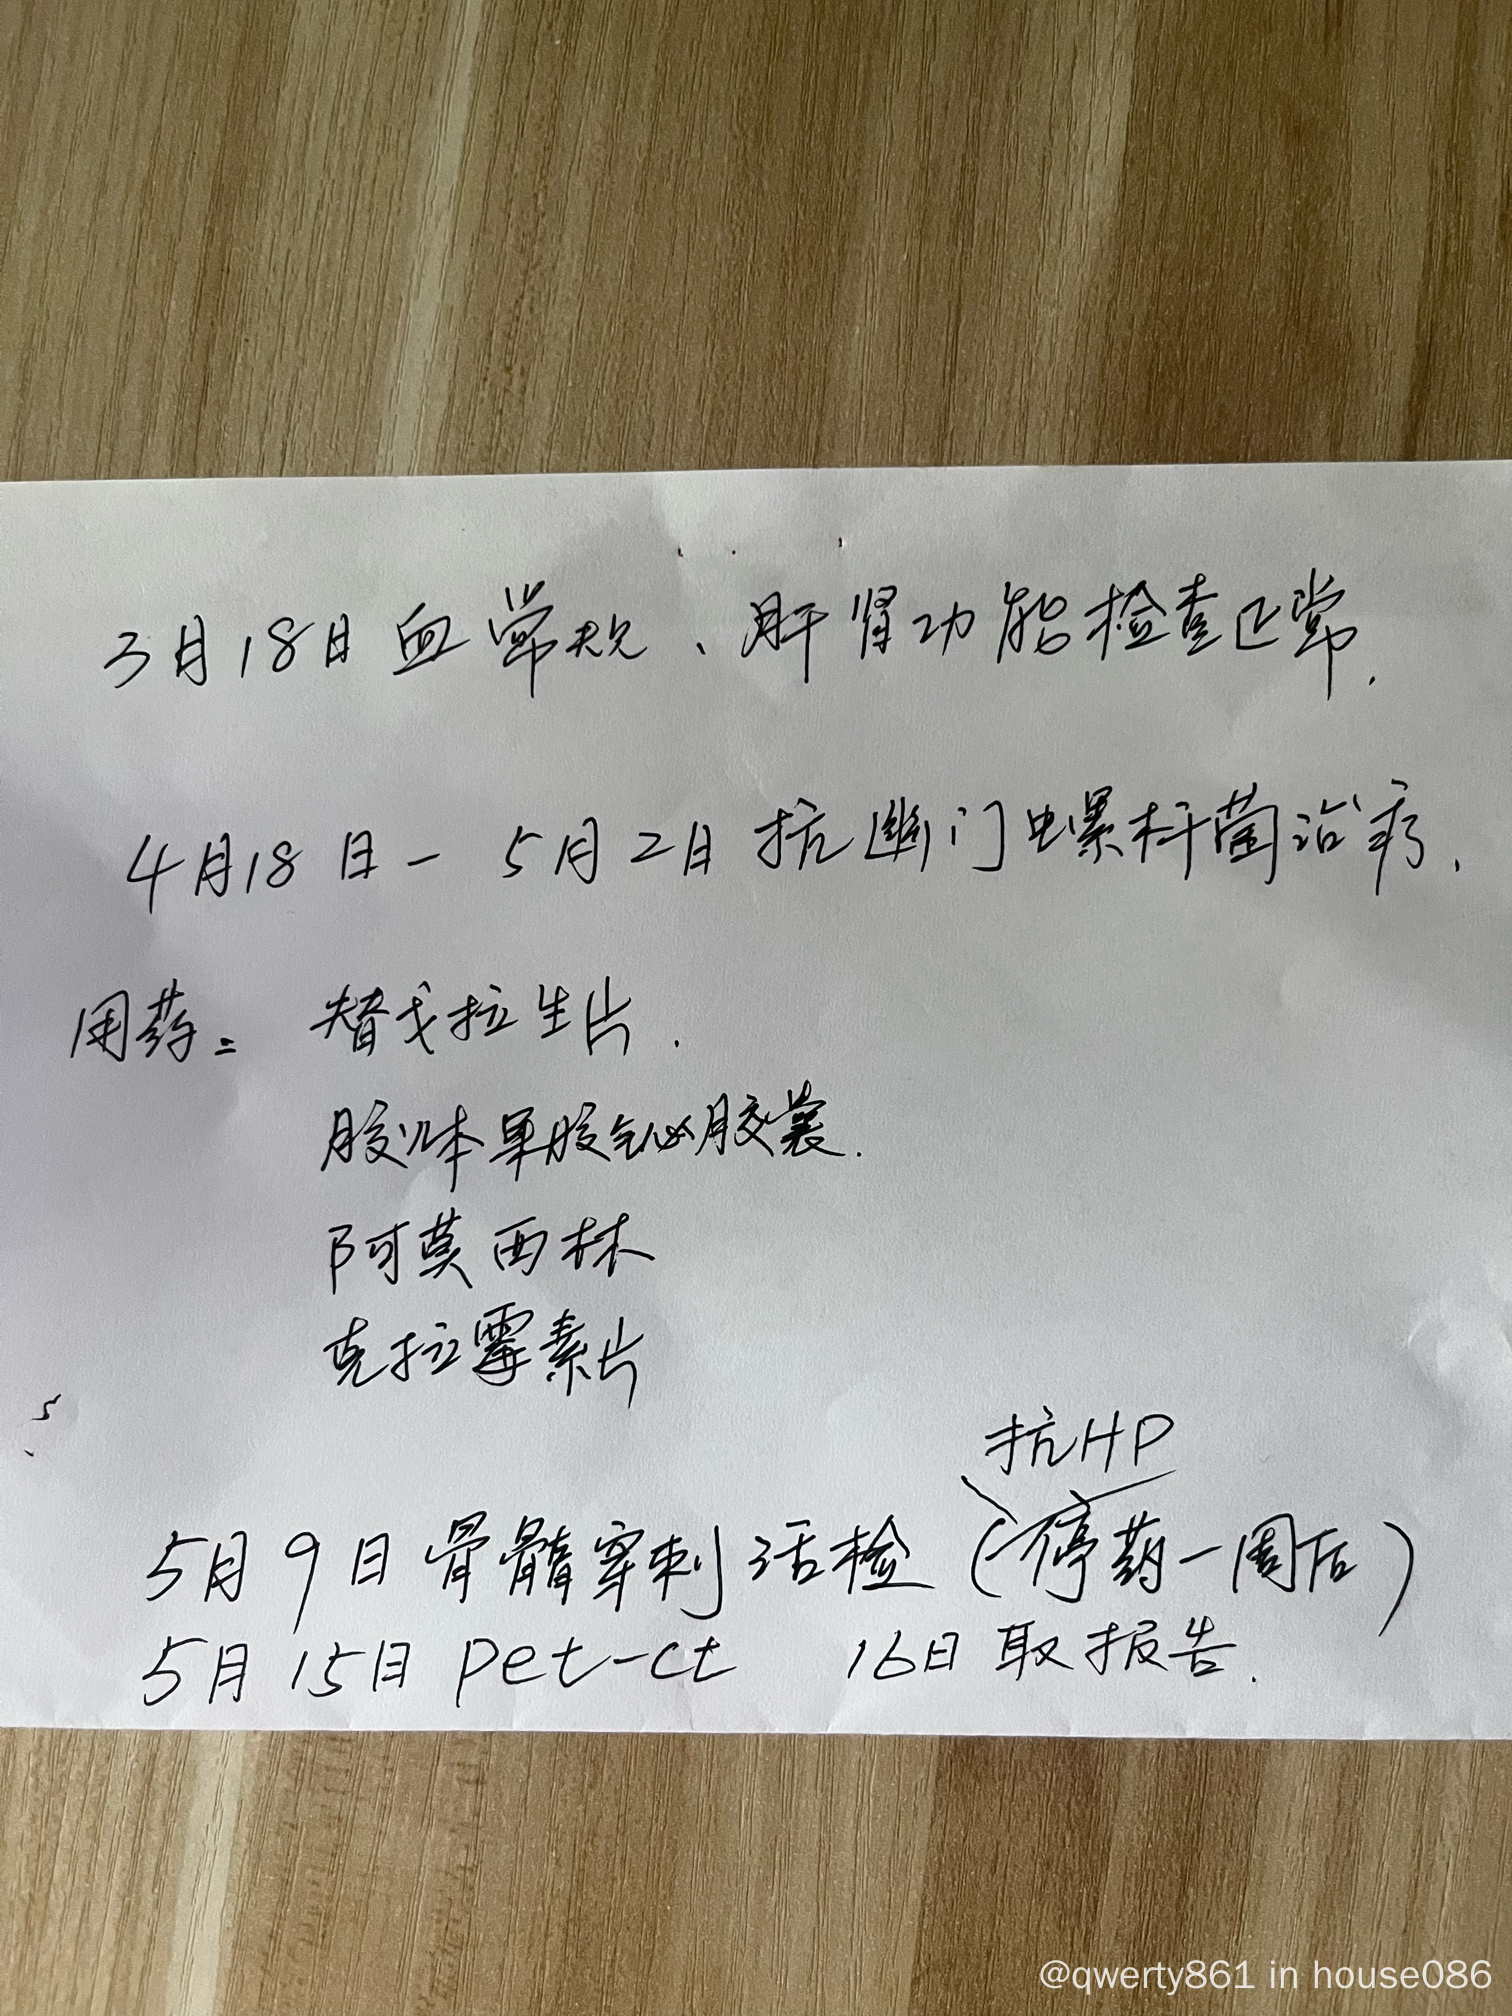 3月18日血常规、肝肾功能检查正常.
4月18日-5月2日抗幽门螺杆菌治疗.
用药: 替戈拉生片.
胶体单胶铋胶囊.
阿莫西林
克拉霉素片
抗HP
5月9日骨髓穿刺活检(停药一周后)
5月15日 pet-ct 16日取报告.
@qwerty861 in house086